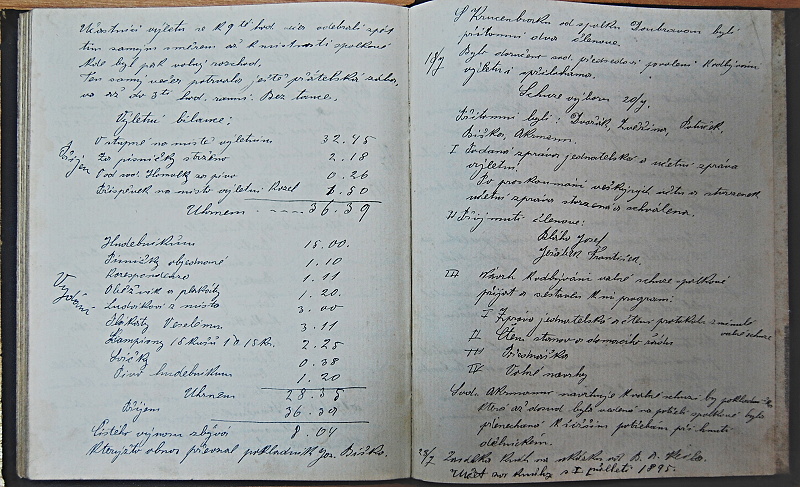 Účastníci výletu se k 9té hod. več. odebrali zpět
tím samým směrem až k místnosti spolkové
kde byl pak volný rozchod.
Ten samý večer potrvala ještě přátelská zába-
va až do 3tí hod. ranní. Bez tance.
Výletní bilance:
Příjem
Vstupné na místě výletním 32.45
Za písničky strženo 2.18
Pod sud. Homolk za pivo 0.26
Příspěvek na místo výletní 1.50
Uhrnem 36.39
Vydání
Hudebníkům 15.00.
Písničky objednané 1.10
Korespondence 1.11
Oběžník a plakáty 1.20.
z místa 3.00
Plakáty Veselému 3.11
Lampiony 15 kusů 1 à 15 kr. 2.25
Svíčky 0.38
Pivo hudebníkům 1.20
Uhrnem 28.35
Příjem 36.39
Čistého výnosu zbývá 8.04
kterýžto obnos převzal pokladník Jos. Biško.
Z Krucenburku od spolku Doubravan byli
přítomni dva členové.
18/7 Bylo doručeno sud. předsedovi povolení k odbývání
výletu i přípisem.
Schuze výboru 20/7.
Přítomni byli: Dvořák,
Biško, Akrmann.
I Podaná zpráva jednatelská a účetní zpráva
výletní.
Po proskoumání veškerých účtů a stvrzenek
účetní zpráva stvrzena a schválena.
II Přijmuti členové:
Bláha Josef
Jeřábek František
III Návrh k odbývání valné schuze spolkové
přijat a sestaven k ní program:
I Zpráva jednatelská a čtení protokolu z minulé
valné schuze
II Čtení stanov a domácího řádu
III Přednáška
IV Volné návrhy
Soud. Akrmann navrhuje k valné schuzi by pokladnička
která až dosud byla vedena na potřeby spolkové byla
přenechána k účelům potřebám při hnutí
dělnickém.
28/7 Zasílka knih na ukázku od
Účet za knihy z I půlletí 1895.